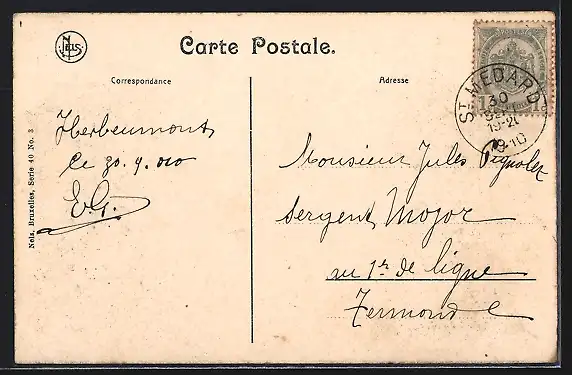 NELS
Carte Postale.
Correspondance
Adresse
Herbeumont,
Le 30. 9. 010
E.G.
Monsieur Jules Pignolet
Sergent Major
au 1r de ligne
Termonde
ST MEDARD
30
SEPT
19-20
1910
1
Nels, Bruxelles, Serie 40 No. 3